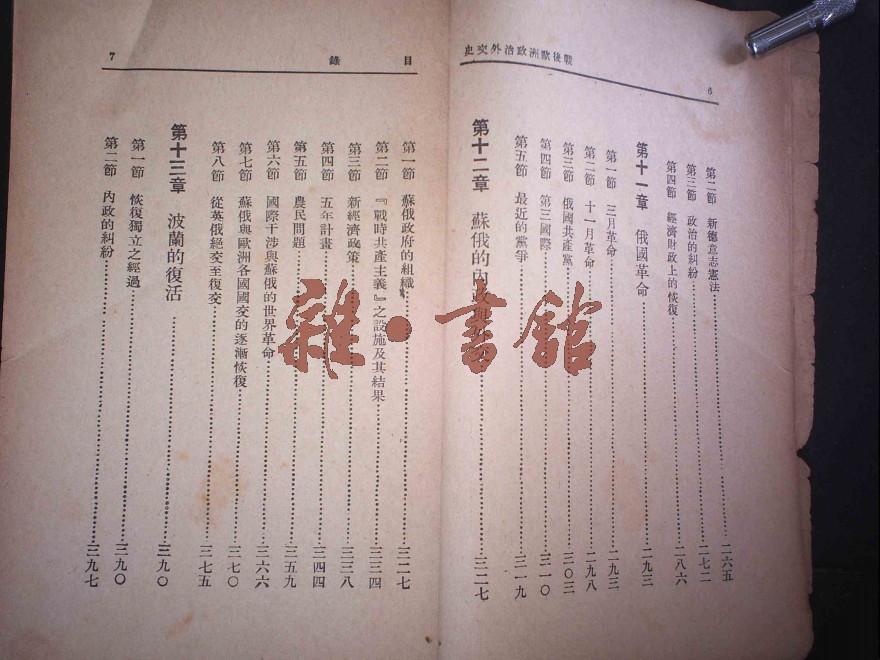 戰後歐洲政治外交史
6
第二節 新德意志憲法……二六五
第三節 政治的糾紛……二七二
第四節 經濟財政上的恢復……二八六
第十一章 俄國革命……二九三
第一節 三月革命……二九三
第二節 十一月革命……二九八
第三節 俄國共產黨……三〇三
第四節 第三國際……三一〇
第五節 最近的黨爭……三一九
第十二章 蘇俄的內政與……三二七
目錄
7
第一節 蘇俄政府的組織……三二七
第二節 『戰時共產主義』之設施及其結果……三三四
第三節 新經濟政策……三三八
第四節 五年計畫……三四四
第五節 農民問題……三五九
第六節 國際干涉與蘇俄的世界革命……三六六
第七節 蘇俄與歐洲各國國交的逐漸恢復……三七〇
第八節 從英俄絕交至復交……三七五
第十三章 波蘭的復活……三九〇
第一節 恢復獨立之經過……三九〇
第二節 內政的糾紛……三九七
雜·書館